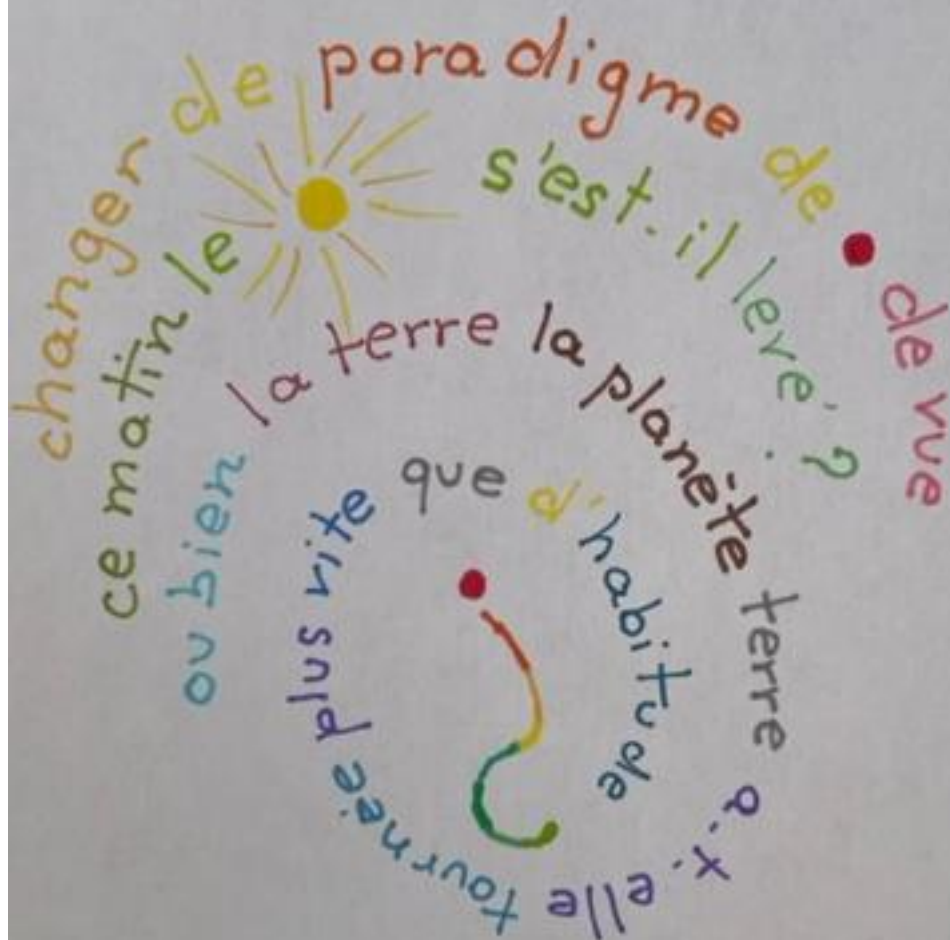 changer de paradigme de • de vue
ce matin le s'est-il levé ?
ou bien la terre la planète terre a-t-elle tournée plus vite que d'habitude ?